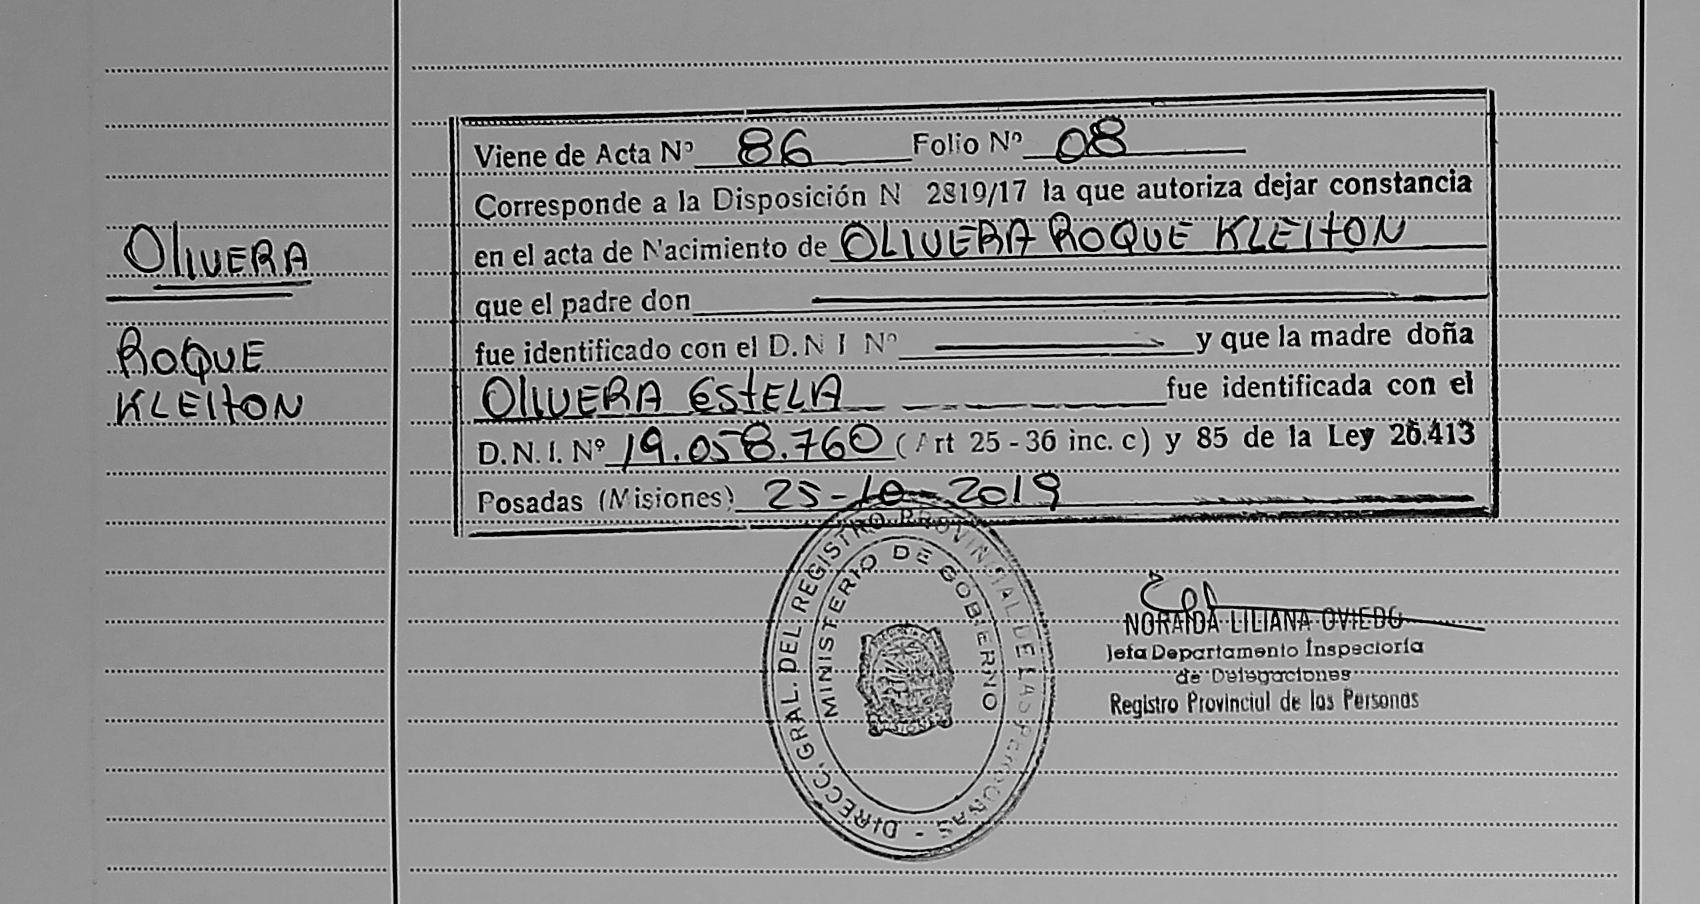 OLIVERA
ROQUE
KLEITON
Viene de Acta Nº 86 Folio Nº 08
Corresponde a la Disposición N 2819/17 la que autoriza dejar constancia
en el acta de Nacimiento de OLIVERA ROQUE KLEITON
que el padre don
fue identificado con el D.N I Nº y que la madre doña
OLIVERA ESTELA fue identificada con el
D.N.I. Nº 19.058.760 (Art 25 - 36 inc. c) y 85 de la Ley 26.413
Posadas (Misiones) 25-10-2019
DIRECC. GRAL. DEL REGISTRO PROVINCIAL DE LAS PERSONAS
MINISTERIO DE GOBIERNO
NORAIDA LILIANA OVIEDO
Jefa Departamento Inspectoría
de Delegaciones
Registro Provincial de las Personas